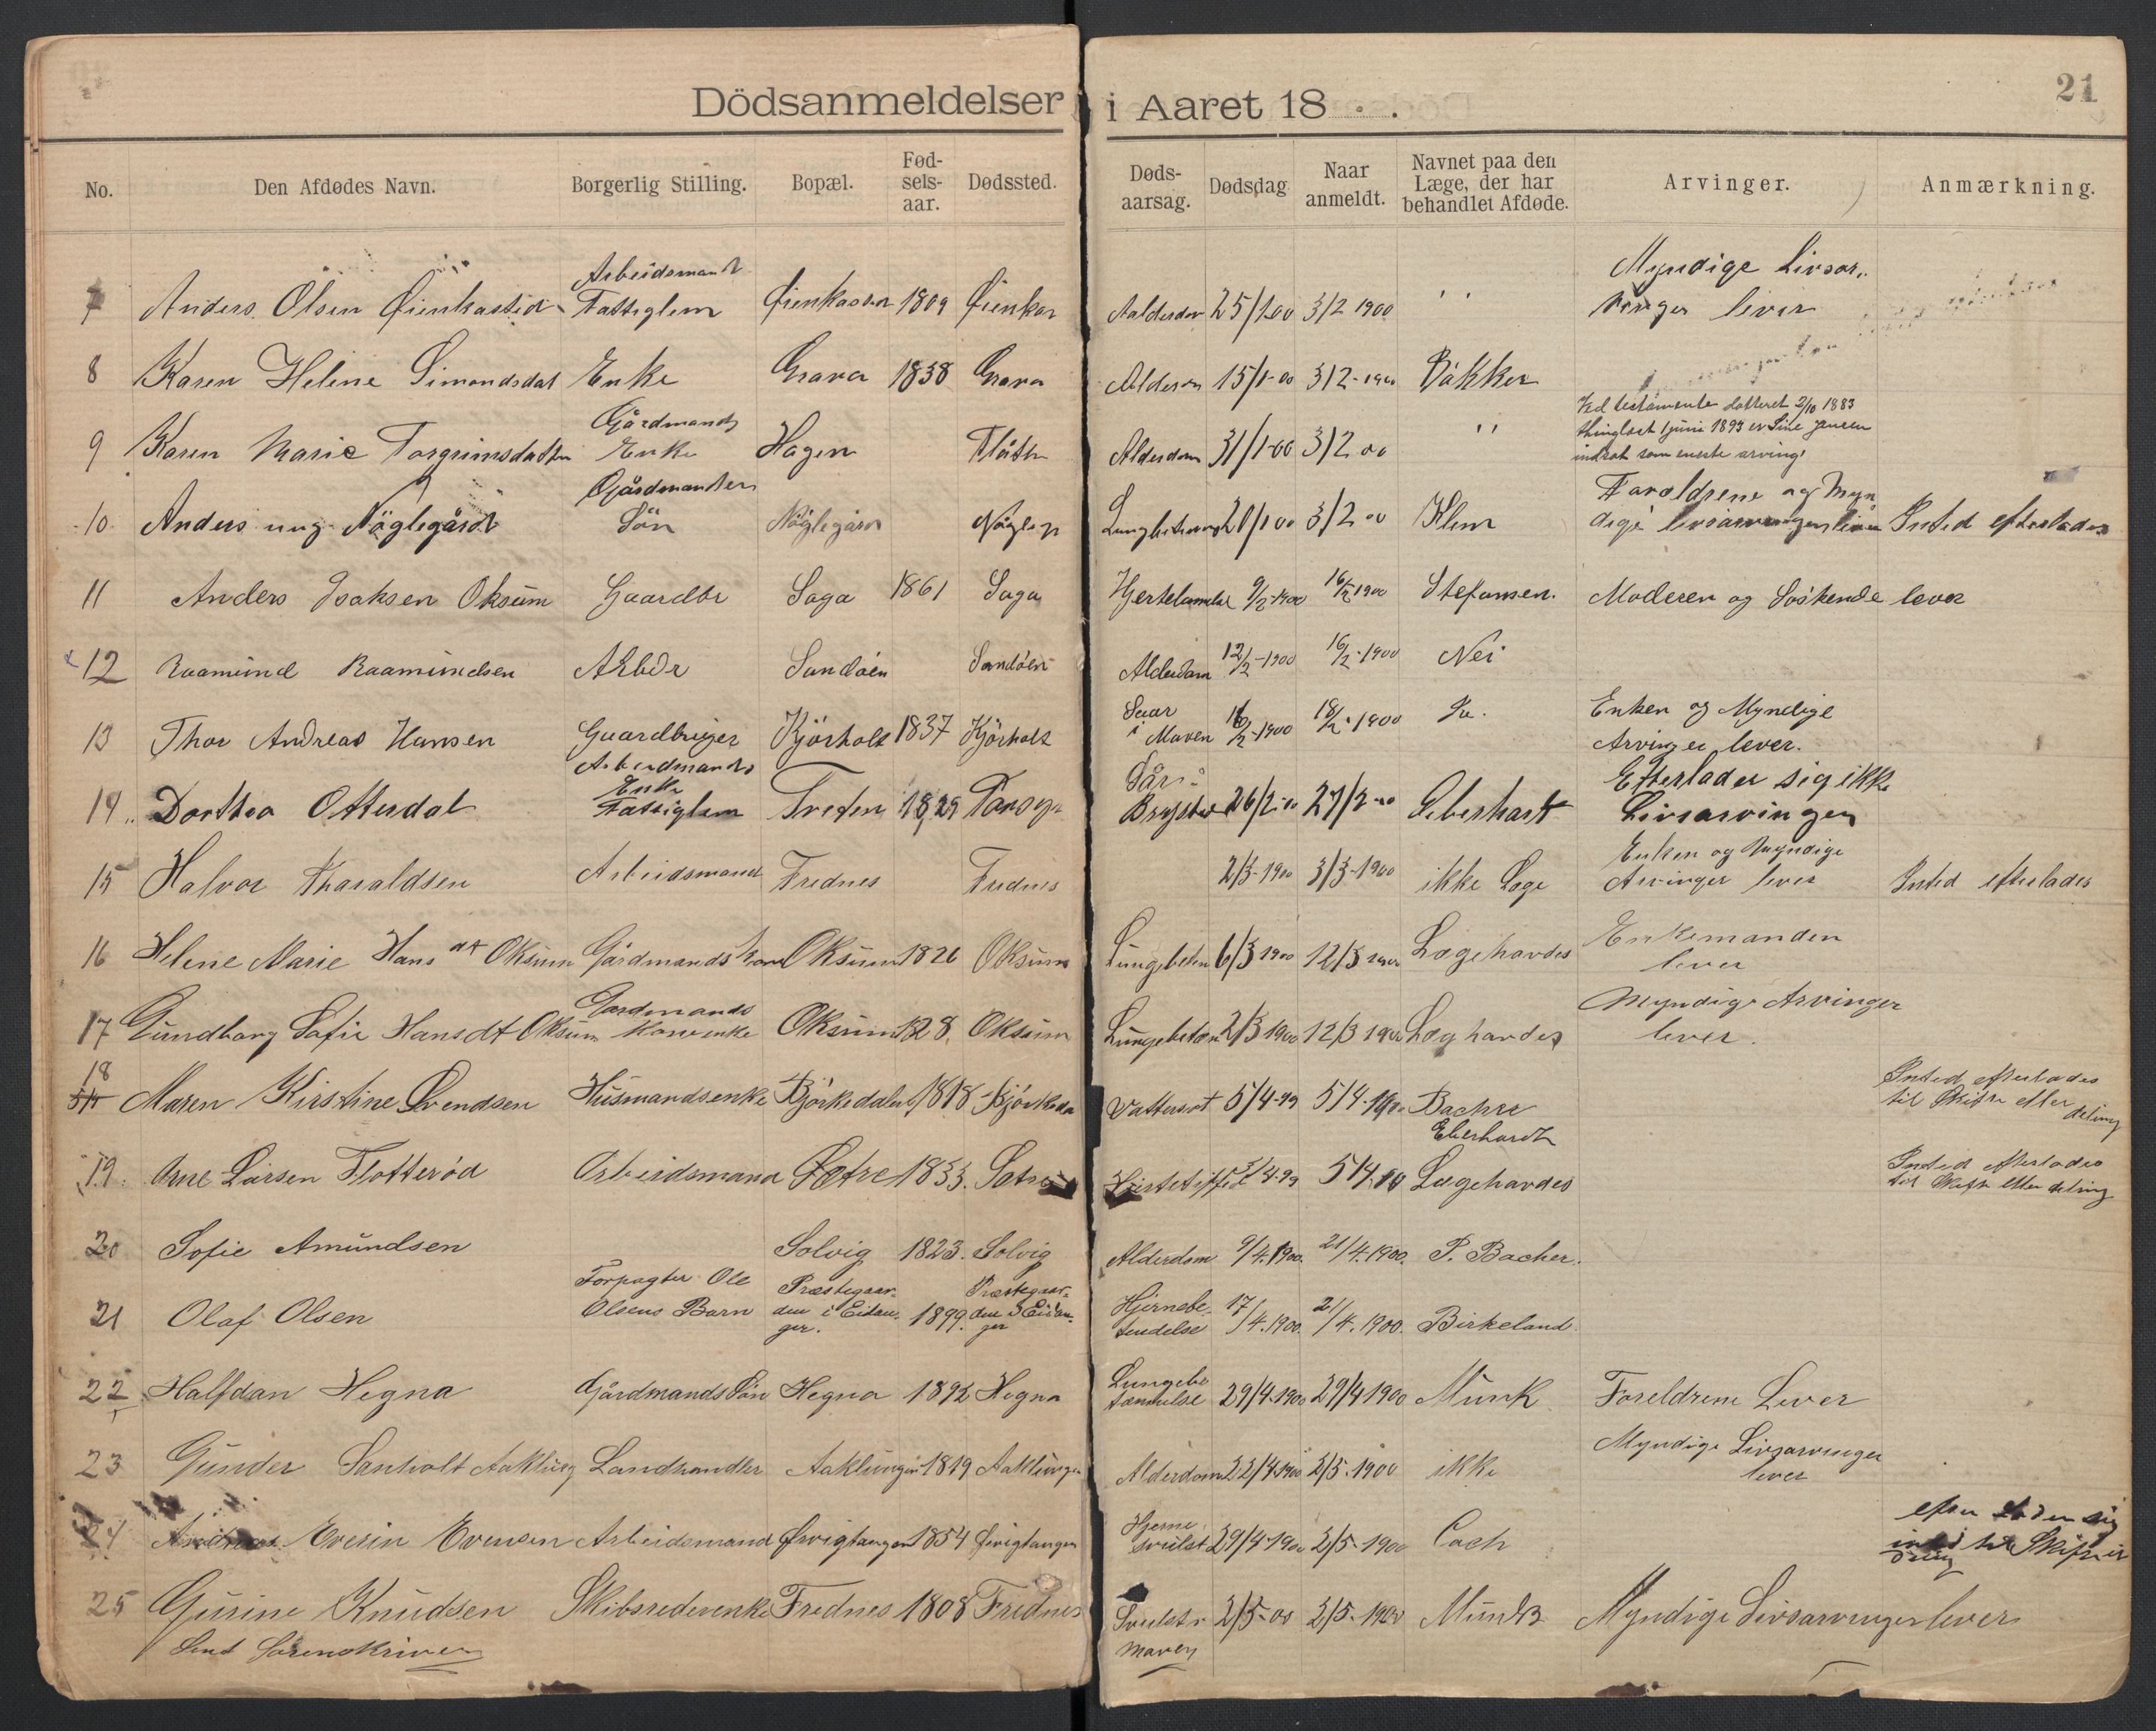 Dödsanmeldelser i Aaret 18 .
21
No. Den Afdødes Navn. Borgerlig Stilling. Bopæl. Fød-sels-aar. Dødssted. Døds-aarsag. Dødsdag Naar anmeldt. Navnet paa den Læge, der har behandlet Afdøde. Arvinger. Anmærkning.
7 Anders Olsen Arbeidsmand Fattiglem 1809 25/1 00 3/2 1900 " Myndige Livsar-vinger lever
8 Karen Helene Simondsdat Enke Grava 1838 Grava 15/1-00 3/2-1900 Bakker
9 Karen Marie Torgrimsdatter Gårdmands Enke Hagen Alderdom 31/1-00 3/2 00 " Ved testamente datteret 2/10 1883 thinglæst 1 juni 1893 er Line Jensen indsat som eneste arving
10 Anders ung Nöglegård Gårdmandsen Sön Nöglegård 3/2 00 Klem Foroldrene og Myn dige livsarvinger lever Inted efterlades
11 Anders Isaksen Oksum Gaardbr Saga 1861 Saga 9/2-1900 16/2 1900 Stefansen. Moderen og Söskende lever
12 Raamund Raamundsen Arbdr Sandöen Sandöen Alderdom 12/2-1900 16/2-1900 Nei
13 Thor Andreas Hansen Gaardbruger Kjörholt 1837 Kjörholt Saar i Maven 16/2-1900 18/2-1900 Enken og Myndige Arvinger lever.
14 Dorthea Otterdal Arbeidmands Enke Fattiglem 1829 26/2-00 27/2-00 Eberhart Efterlader sig ikke Livsarvinger
15 Halvor Tharaldsen Arbeidsmand Frednes Frednes 2/3-1900 3/3-1900 ikke Læge Enken og Myndige Arvinger lever Inted efterlades
16 Helene Marie Hans dt Oksum Gårdmands kone Oksum 1826 Oksum 6/3 1900 12/3 1900 Lægehavdes Enkemanden lever
17 Gundborg Sofie Hansdt Oksum Gardmands Oksum Oksum 2/3 1900 12/3 1900 Læg havdes Myndige Arvinger lever.
18 Maren Kirstine Svendsen Husmandsenke Björkedalen 1818 Björkeda Vattersot 5/4-99 5/4-1900 Bacher Eberhardt Inted efterlades til Skifte eller deling
19. Arne Larsen Flotteröd Arbeidsmand Sætre 1833. 5/4.00 Lægehavdes Inted efterlades til Skifte eller deling
20 Sofie Amundsen Solvig 1823. Solvig Alderdom 9/4.1900. 21/4.1900. P. Bacher.
21 Olaf Olsen Forpagter Ole Olsens Barn Præstegaar-den i Eidan-ger. 1899. Præstegaar-den i Eidan-ger Hjernebe-tendelse 17/4.1900. 21/4.1900. Birkeland.
22 Halfdan Hegna Gårdmands Sön Hegna 1892 Hegna Lungebe 29/4-1900 29/4 1900 Munk Foreldrene Lever
23 Gunder Sanholt Landhandler Aaklungen 1819 Aaklungen Alderdom 22/4 1900 2/5.1900 ikke Myndige Livsarvinger lever
24 Evensen Arbeidsmand 1854 Hjerne svulst 29/4-1900 2/5-1900 Coch
25 Gurine Knudsen Skibsrederenke Frednes 1808 Frednes Svulst i Maven 2/5-00 2/5-1900 Munk Myndige Livsarvinger lever
Sent Sorenskriver